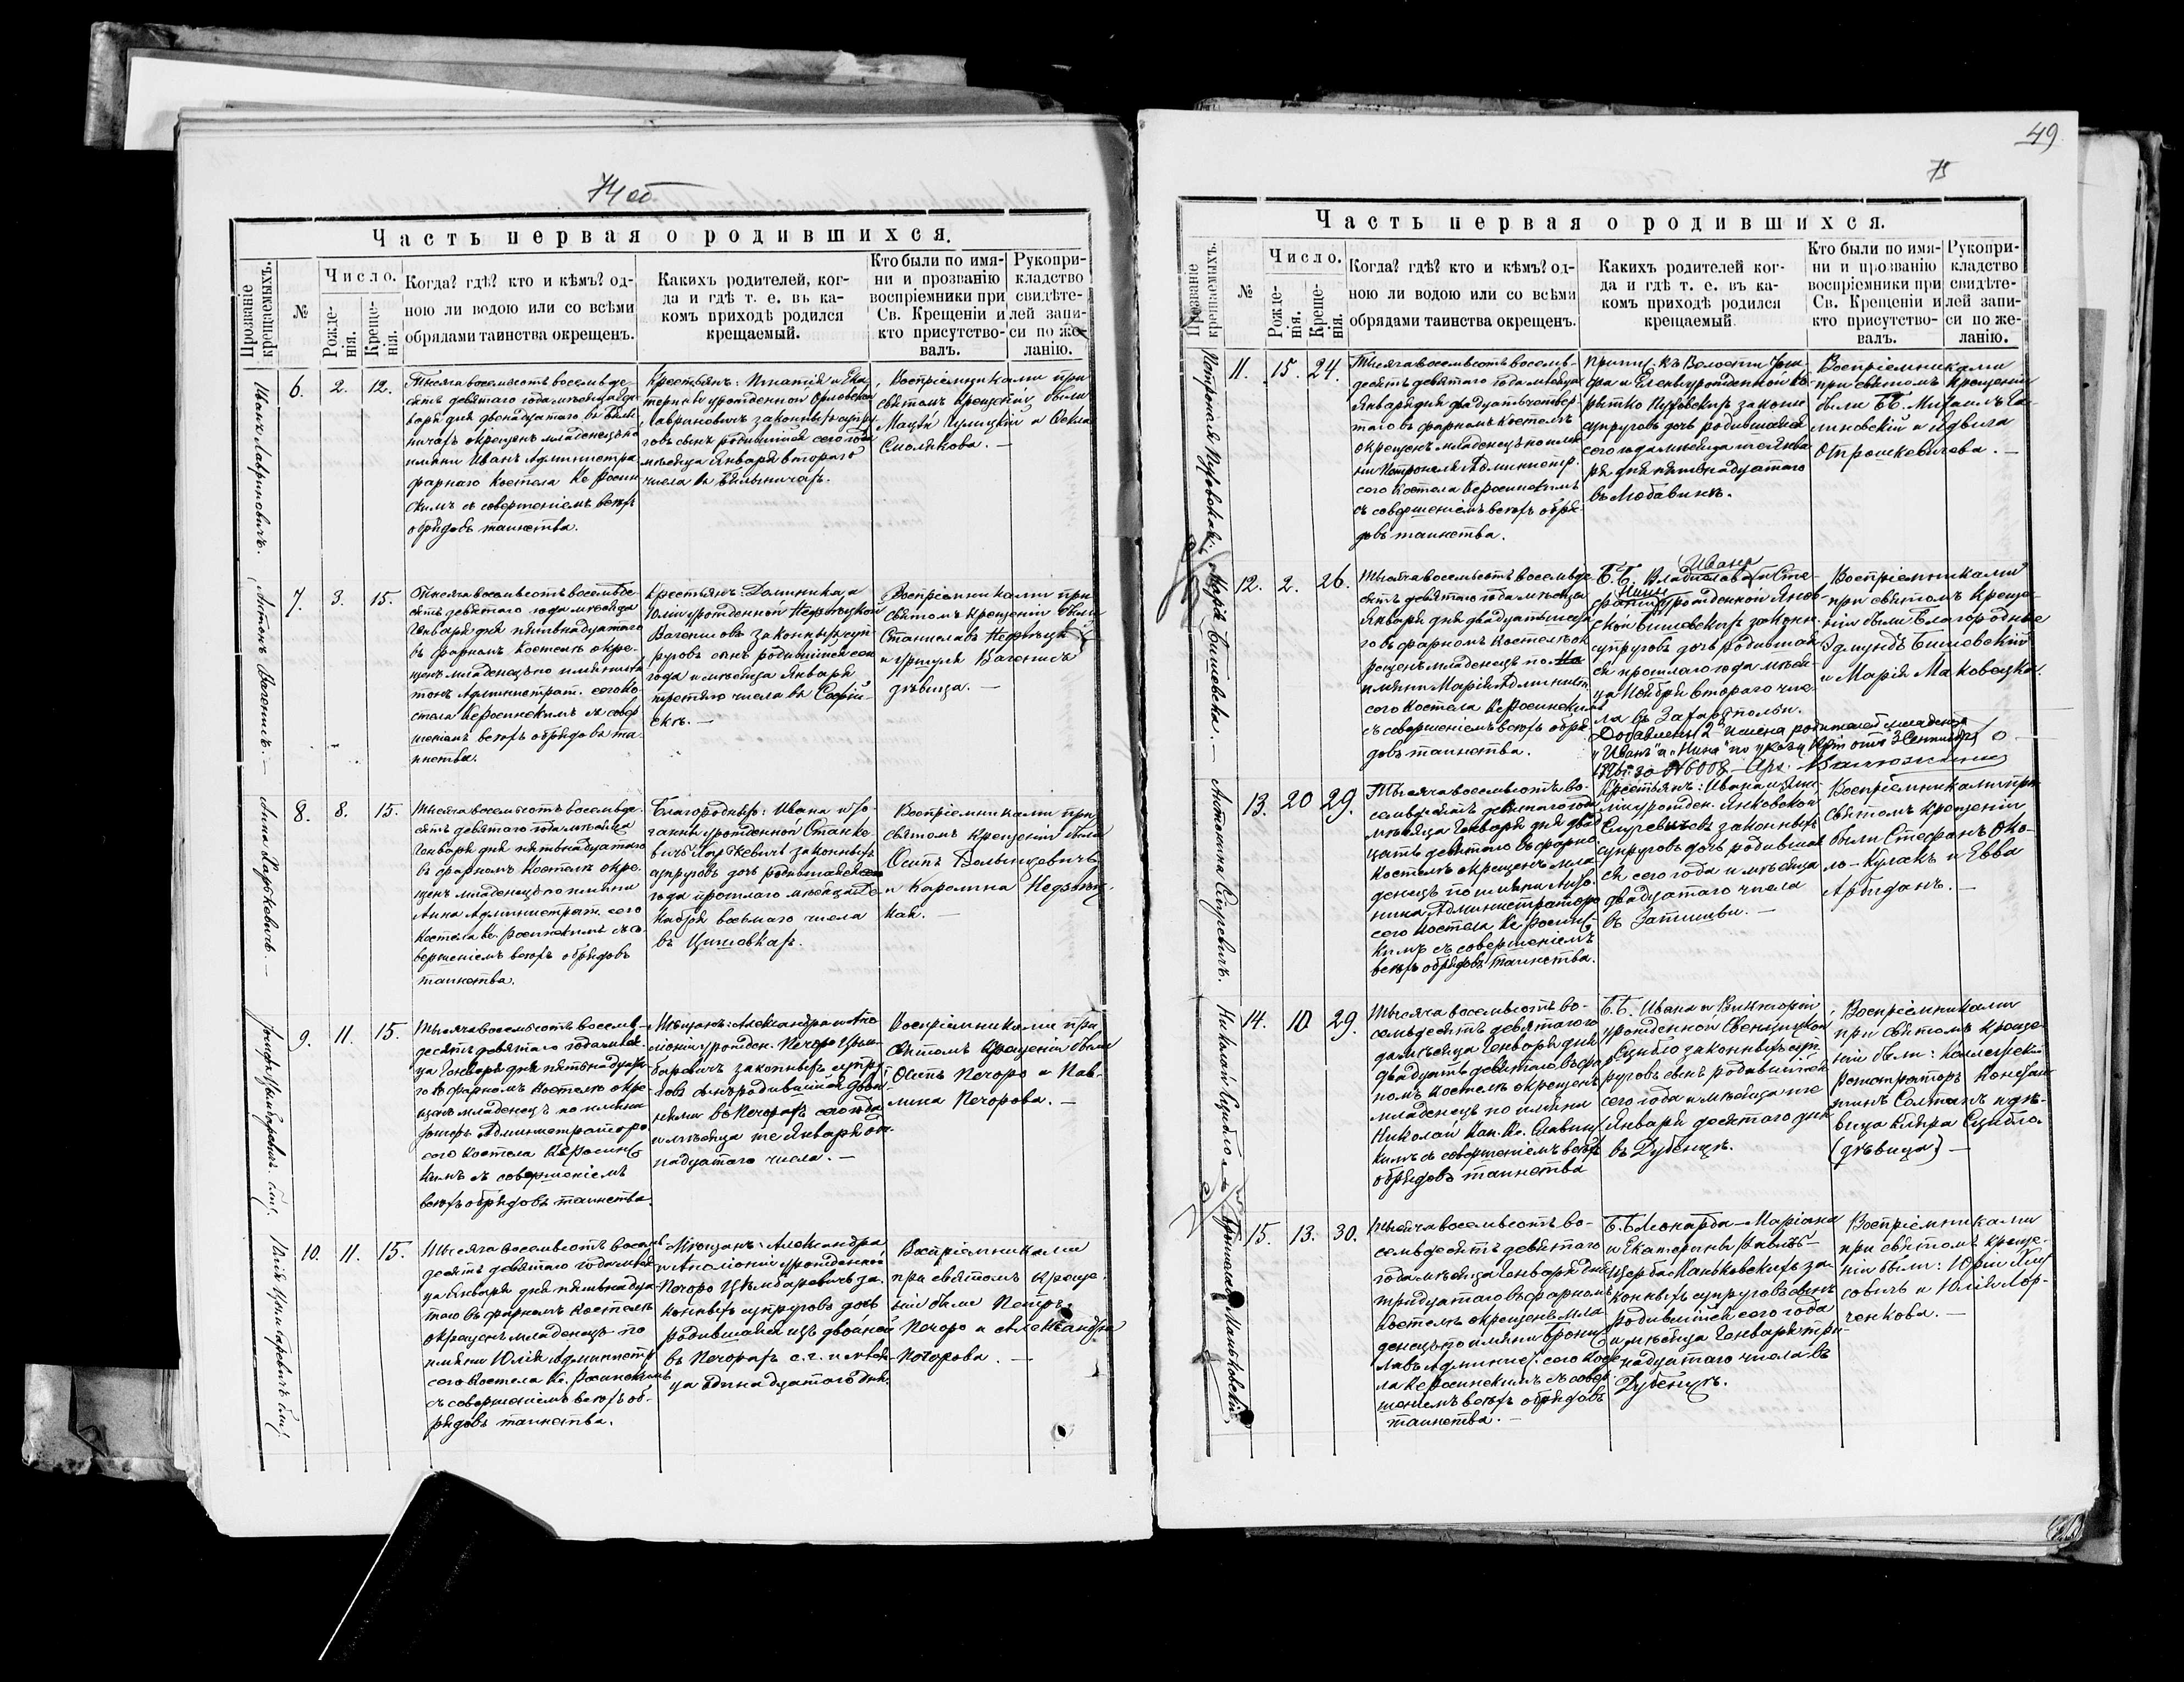 74 об
Часть первая о родившихся.
Прозваніе крещаемыхъ.
№
Число.
Рожде-
нія.
Креще-
нія.
Когда? гдѣ? кто и кѣмъ? од-
ною ли водою или со всѣми
обрядами таинства окрещенъ.
Какихъ родителей, ког-
да и гдѣ т. е. въ ка-
комъ приходѣ родился
крещаемый.
Кто были по имя-
ни и прозванію
воспріемники при
Св. Крещеніи и
кто присутство-
валъ.
Рукопри-
кладство
свидѣте-
лей запи-
си по же-
ланію.
Иванъ Лавриновичъ.
6. 2. 12.
Тысяча восемьсотъ восемьде-
сятъ девятаго года мѣсяца Ген-
варя дня двенадцатаго въ Бѣлы-
ничахъ окрещенъ младенецъ по
имяни Иванъ Администра.
фарнаго Костела Кс Росин-
скимъ съ совершеніемъ всѣхъ
обрядовъ таинства.
Крестьянъ: Игнатія и Ека-
терины урожденной Орловской
Лавриновичъ законныхъ супру-
говъ сынъ родившійся сего года
мѣсяца Января втораго
числа въ Бѣлыничахъ.
Воспріемниками при
святомъ крещеніи были
Смолякова. —
Антонъ
7. 3. 15.
Тысяча восемьсотъ восемьде-
сятъ девятаго года мѣсяца
Генваря дня пятьнадцатаго
въ фарномъ костелѣ окре-
щенъ младенецъ по имяни Ан-
тонъ Администрат. сего Ко-
стела Кс Росинскимъ съ совер-
шеніемъ всѣхъ обрядовъ та-
инства.
Крестьянъ: Доминика и
Юліи урожденной
законныхъ суп-
руговъ сынъ родившійся сего
года и мѣсяца Января
третяго числа въ
Воспріемниками при
святомъ крещеніи были
Станиславъ
дѣвица. —
Анна
8. 8. 15.
Тысяча восемьсотъ восемьде-
сятъ девятаго года мѣсяца
Генваря дня пятьнадцатаго
въ фарномъ Костелѣ окре-
щенъ младенецъ по имяни
Анна Администрат. сего
Костела Кс. Росинскимъ съ со-
вершеніемъ всѣхъ обрядовъ
таинства.
Благородныхъ: Ивана и Іо-
ганны урожденной Станке-
вичъ законныхъ
супруговъ дочь родившаяся
года прошлаго мѣсяца Де-
кабря восьмаго числа
въ Цишовкахъ.
Воспріемниками при
святомъ крещеніи были
Осипъ
и Каролина
Іосифъ
9. 11. 15.
Тысяча восемьсотъ восемь-
десятъ девятаго года мѣся-
ца Генваря дня пятьнадцата-
го въ фарномъ костелѣ окре-
щенъ младенецъ по имяни
Іосифъ Администраторо
сего костела Кс Росинс-
кимъ съ совершеніемъ
всѣхъ обрядовъ таинства.
Мѣщанъ: Александра и Апо-
лоніи урожден. Печоро Цым-
баревичъ законныхъ супру-
говъ сынъ родившійся двой-
нями въ Печорахъ сего года
и мѣсяца же Января оди-
надцатаго числа. —
Воспріемниками при
святомъ крещеніи были
Осипъ Печоро и Пав-
лина Печорова. —
Юлія
10. 11. 15.
Тысяча восемьсотъ восемь-
десятъ девятаго года мѣся-
ца Января дня пятьнадца-
таго въ фарномъ костелѣ
окрещенъ младенецъ по
имяни Юлія Администр.
сего костела Кс. Росинскимъ
съ совершеніемъ всѣхъ об-
рядовъ таинства.
Мѣщанъ: Александра
и Аполоніи урожденной
Печоро Цымбаревичъ за-
конныхъ супруговъ дочь
родившаяся изъ двойней
въ Печорахъ с. г. и мѣся-
ца одинадцатого дня.
Воспріемниками
при святомъ креще-
ніи были Петръ
Печоро и Александра
Печорова. —
49
75
Часть первая о родившихся.
Прозваніе крещаемыхъ.
№
Число.
Рожде-
нія.
Креще-
нія.
Когда? гдѣ? кто и кѣмъ? од-
ною ли водою или со всѣми
обрядами таинства окрещенъ.
Какихъ родителей ког-
да и гдѣ т. е. въ ка-
комъ приходѣ родился
крещаемый.
Кто были по имя-
ни и прозванію
воспріемники при
Св. Крещеніи и
кто присутство-
валъ.
Рукопри-
кладство
свидѣте-
лей запи-
си по же-
ланію.
Петронеля
11. 15. 24.
Тысяча восемьсотъ восемь-
десятъ девятаго года мѣсяца
Января дня двадцать четвер-
таго въ фарномъ костелѣ
окрещенъ младенецъ по имя-
ни Петронеля Администр.
сего Костела Кс Росинскимъ
съ совершеніемъ всѣхъ обря-
довъ таинства.
Припис. къ Волости
и Елены урожденной
закон.
супруговъ дочь родившаяся
сего года мѣсяца же Янва-
ря дня пятьнадцатаго
въ Любавинѣ.
Воспріемниками
при святомъ крещеніи
были Б.Б. Михаилъ
и Ядвига
Отрошкевичева. —
Марія Бишевска. —
12. 2. 26.
Тысяча восемьсотъ восемьде-
сятъ девятаго года мѣсяца
Января дня двадцать шеста-
го въ фарномъ костелѣ ок-
рещенъ младенецъ по
имяни Марія Админист.
сего костела Кс Росинскимъ
съ совершеніемъ всѣхъ обря-
довъ таинства.
Ивана
Б.Б. Владислава и Сте-
Нины
фаніи урожденной Янов-
ской Бишевскихъ закон.
супруговъ дочь родившая-
ся прошлаго года мѣся-
ца Ноября втораго чис-
ла въ
Добавлены 2 имена родителей младенца
„Иванъ" и „Нина" по указу отъ 3 Сентября
Воспріемниками
при святомъ креще-
ніи были Благородные
Эдмундъ Бишевскій
и Марія Маковецка.
Антонина Снургевичъ.
13. 20 29.
Тысяча восемьсотъ во-
семьдесятъ девятаго года
мѣсяца Генваря дня двад-
цать девятаго въ фарно.
костелѣ окрещенъ мла-
денецъ по имяни Анто-
нина Администраторо
сего костела Кс. Росинс-
кимъ съ совершеніемъ
всѣхъ обрядовъ таинства.
Крестьянъ: Ивана и Эми-
ліи урожден. Янковской
законныхъ
супруговъ дочь родившая-
ся сего года и мѣсяца
двадцатаго числа
въ Затишьи. —
Воспріемниками при
святомъ крещеніи
были Стефанъ Око-
ло-Кулакъ и Евва
Николай Сцибло
14. 10 29.
Тысяча восемьсотъ во-
семьдесятъ девятаго го-
да мѣсяца Генваря дня
двадцать девятаго въ фар-
номъ костелѣ окрещенъ
младенецъ по имяни
Николай
кимъ съ совершеніемъ всѣхъ
обрядовъ таинства
Б.Б. Ивана и Викторіи
урожденной Свенцицкой
Сцибло законныхъ суп-
руговъ сынъ родившійся
сего года и мѣсяца же
Января десятого дня
въ Дубенцѣ.
Воспріемниками
при святомъ креще-
ніи были: Коллежскій
Регистраторъ Констан-
тинъ Солтанъ и дѣ-
вица Клара Сцибло.
(дѣвица) —
Брониславъ Маньковскій
15. 13. 30.
Тысяча восемьсотъ во-
семьдесятъ девятаго
года мѣсяца Генваря дня
тридцатаго въ фарномъ
костелѣ окрещенъ мла-
денецъ по имяни Брони-
славъ Админис. сего Косте-
ла Кс Росинскимъ съ совер-
шеніемъ всѣхъ обрядовъ
таинства. —
Б.Б Леонарда-Маріана
и Екатерины
Щерба Маньковскихъ за-
конныхъ супруговъ сынъ
родившійся сего года
и мѣсяца Генваря три-
надцатаго числа въ
Дубенцѣ.
Воспріемниками
при святомъ креще-
ніи были: Юрій
и Юлія Гор-
ченкова. —